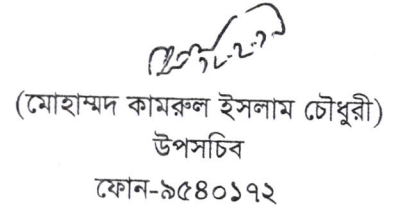 (মোহাম্মদ কামরুল ইসলাম চৌধুরী)
উপসচিব
ফোন-৯৫৪০১৭২